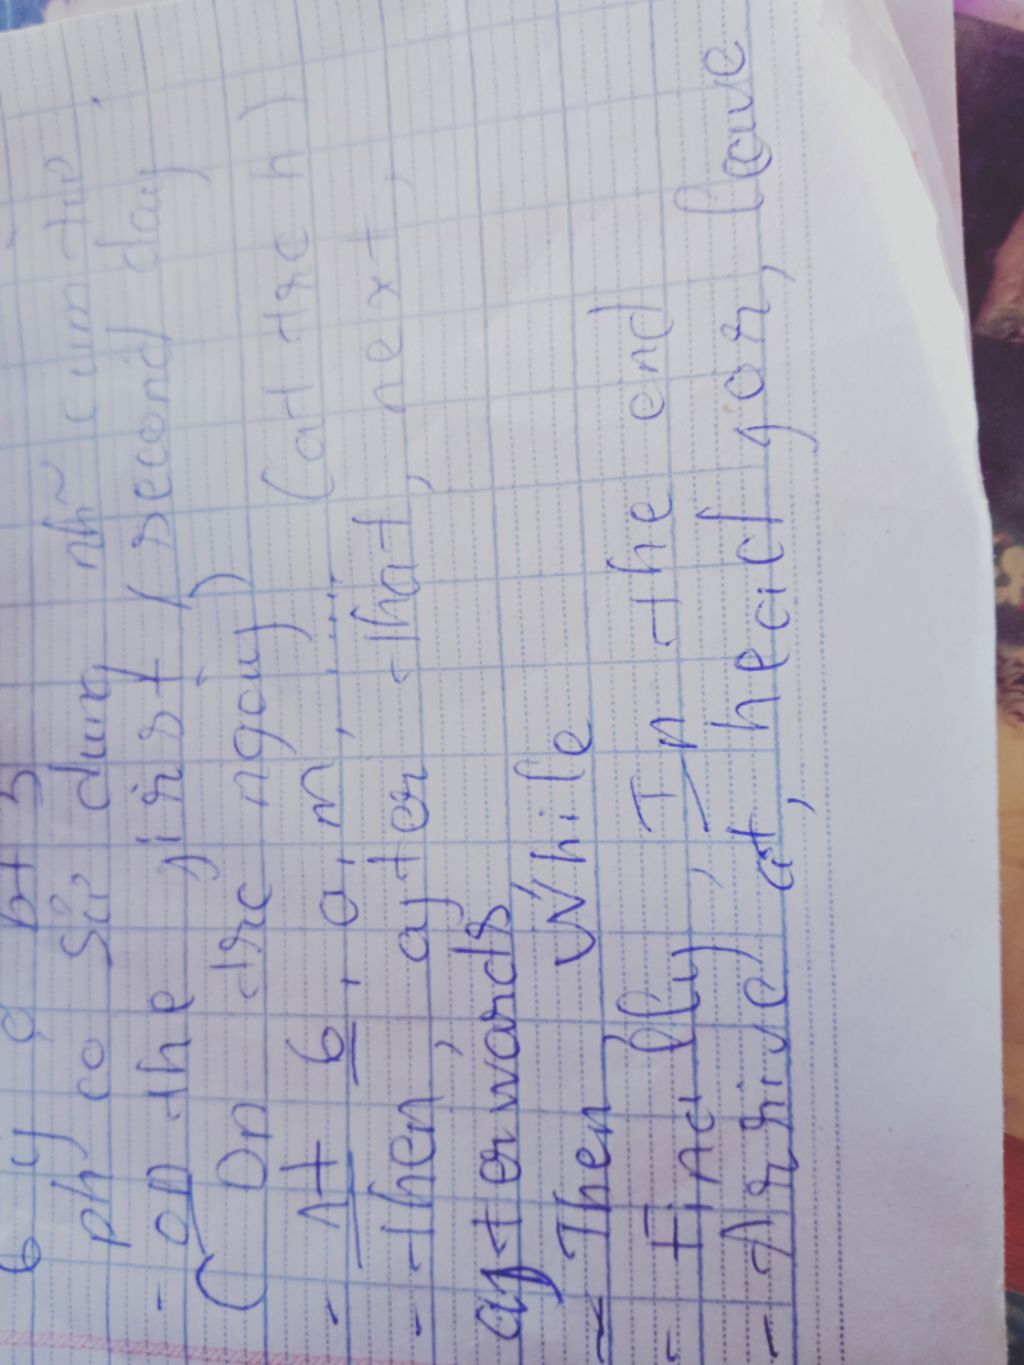 6 ý ở bt 5
ph có sử dụng nh~ cụm từ
- on the first / second day
( On trc ngày) (at trc h)
- At 6, a, m, ....
- then, after that, next,
afterwards
- Then, While
- Finally, In the end
- Arrive at, head for, leave